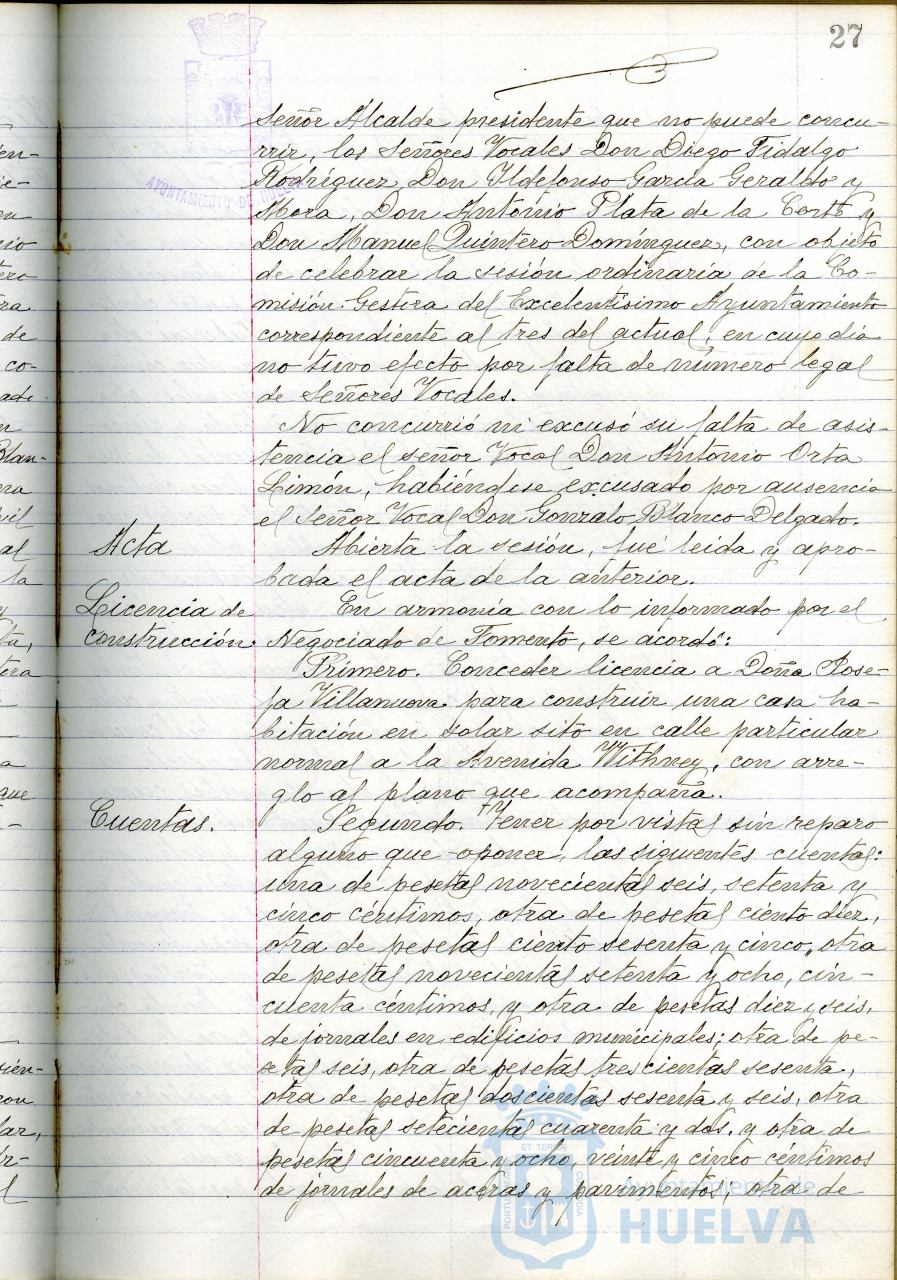 27
AYUNTAMIENTO DE HUELVA
Señor Alcalde presidente que no puede concu-
rrir, los Señores Vocales Don Diego Fidalgo
Rodríguez, Don Ildefonso García Geraldo y
Mora, Don Antonio Plata de la Corte y
Don Manuel Quintero Domínguez, con objeto
de celebrar la sesión ordinaria de la Co-
misión Gestora del Excelentísimo Ayuntamiento
correspondiente al tres del actual, en cuyo día
no tuvo efecto por falta de número legal
de Señores Vocales.
No concurrió ni excusó su falta de asis-
tencia el señor Vocal Don Antonio Orta
Limón, habiéndose excusado por ausencia
el Señor Vocal Don Gonzalo Blanco Delgado.
Acta
Abierta la sesión, fué leída y apro-
bada el acta de la anterior.
Licencia de
construcción
En armonía con lo informado por el
Negociado de Fomento, se acordó:
Primero. Conceder licencia a Doña Jose-
fa Villanueva para construir una casa ha-
bitación en solar sito en calle particular
normal a la Avenida Withney, con arre-
glo al plano que acompaña.
Cuentas.
Segundo. Tener por vistas sin reparo
alguno que oponer, las siguientes cuentas:
una de pesetas novecientas seis, setenta y
cinco céntimos, otra de pesetas ciento diez,
otra de pesetas ciento sesenta y cinco, otra
de pesetas novecientas setenta y ocho, cin-
cuenta céntimos, y otra de pesetas diez y seis,
de jornales en edificios municipales; otra de pe-
setas seis, otra de pesetas trescientas sesenta,
otra de pesetas doscientas sesenta y seis, otra
de pesetas setecientas cuarenta y dos, y otra de
pesetas cincuenta y ocho, veinte y cinco céntimos
de jornales de aceras y pavimentos; otra de
Ayuntamiento de
HUELVA